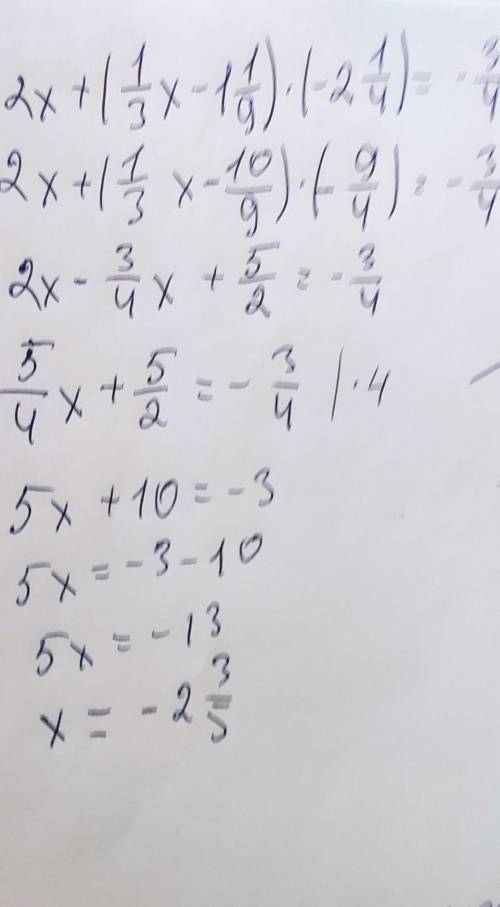 2x+(1/3x-1 1/9)·(-2 1/4)=-3/4
2x+(1/3x-10/9)·(-9/4)=-3/4
2x-3/4x+5/2=-3/4
5/4x+5/2=-3/4 |·4
5x+10=-3
5x=-3-10
5x=-13
x=-2 3/5